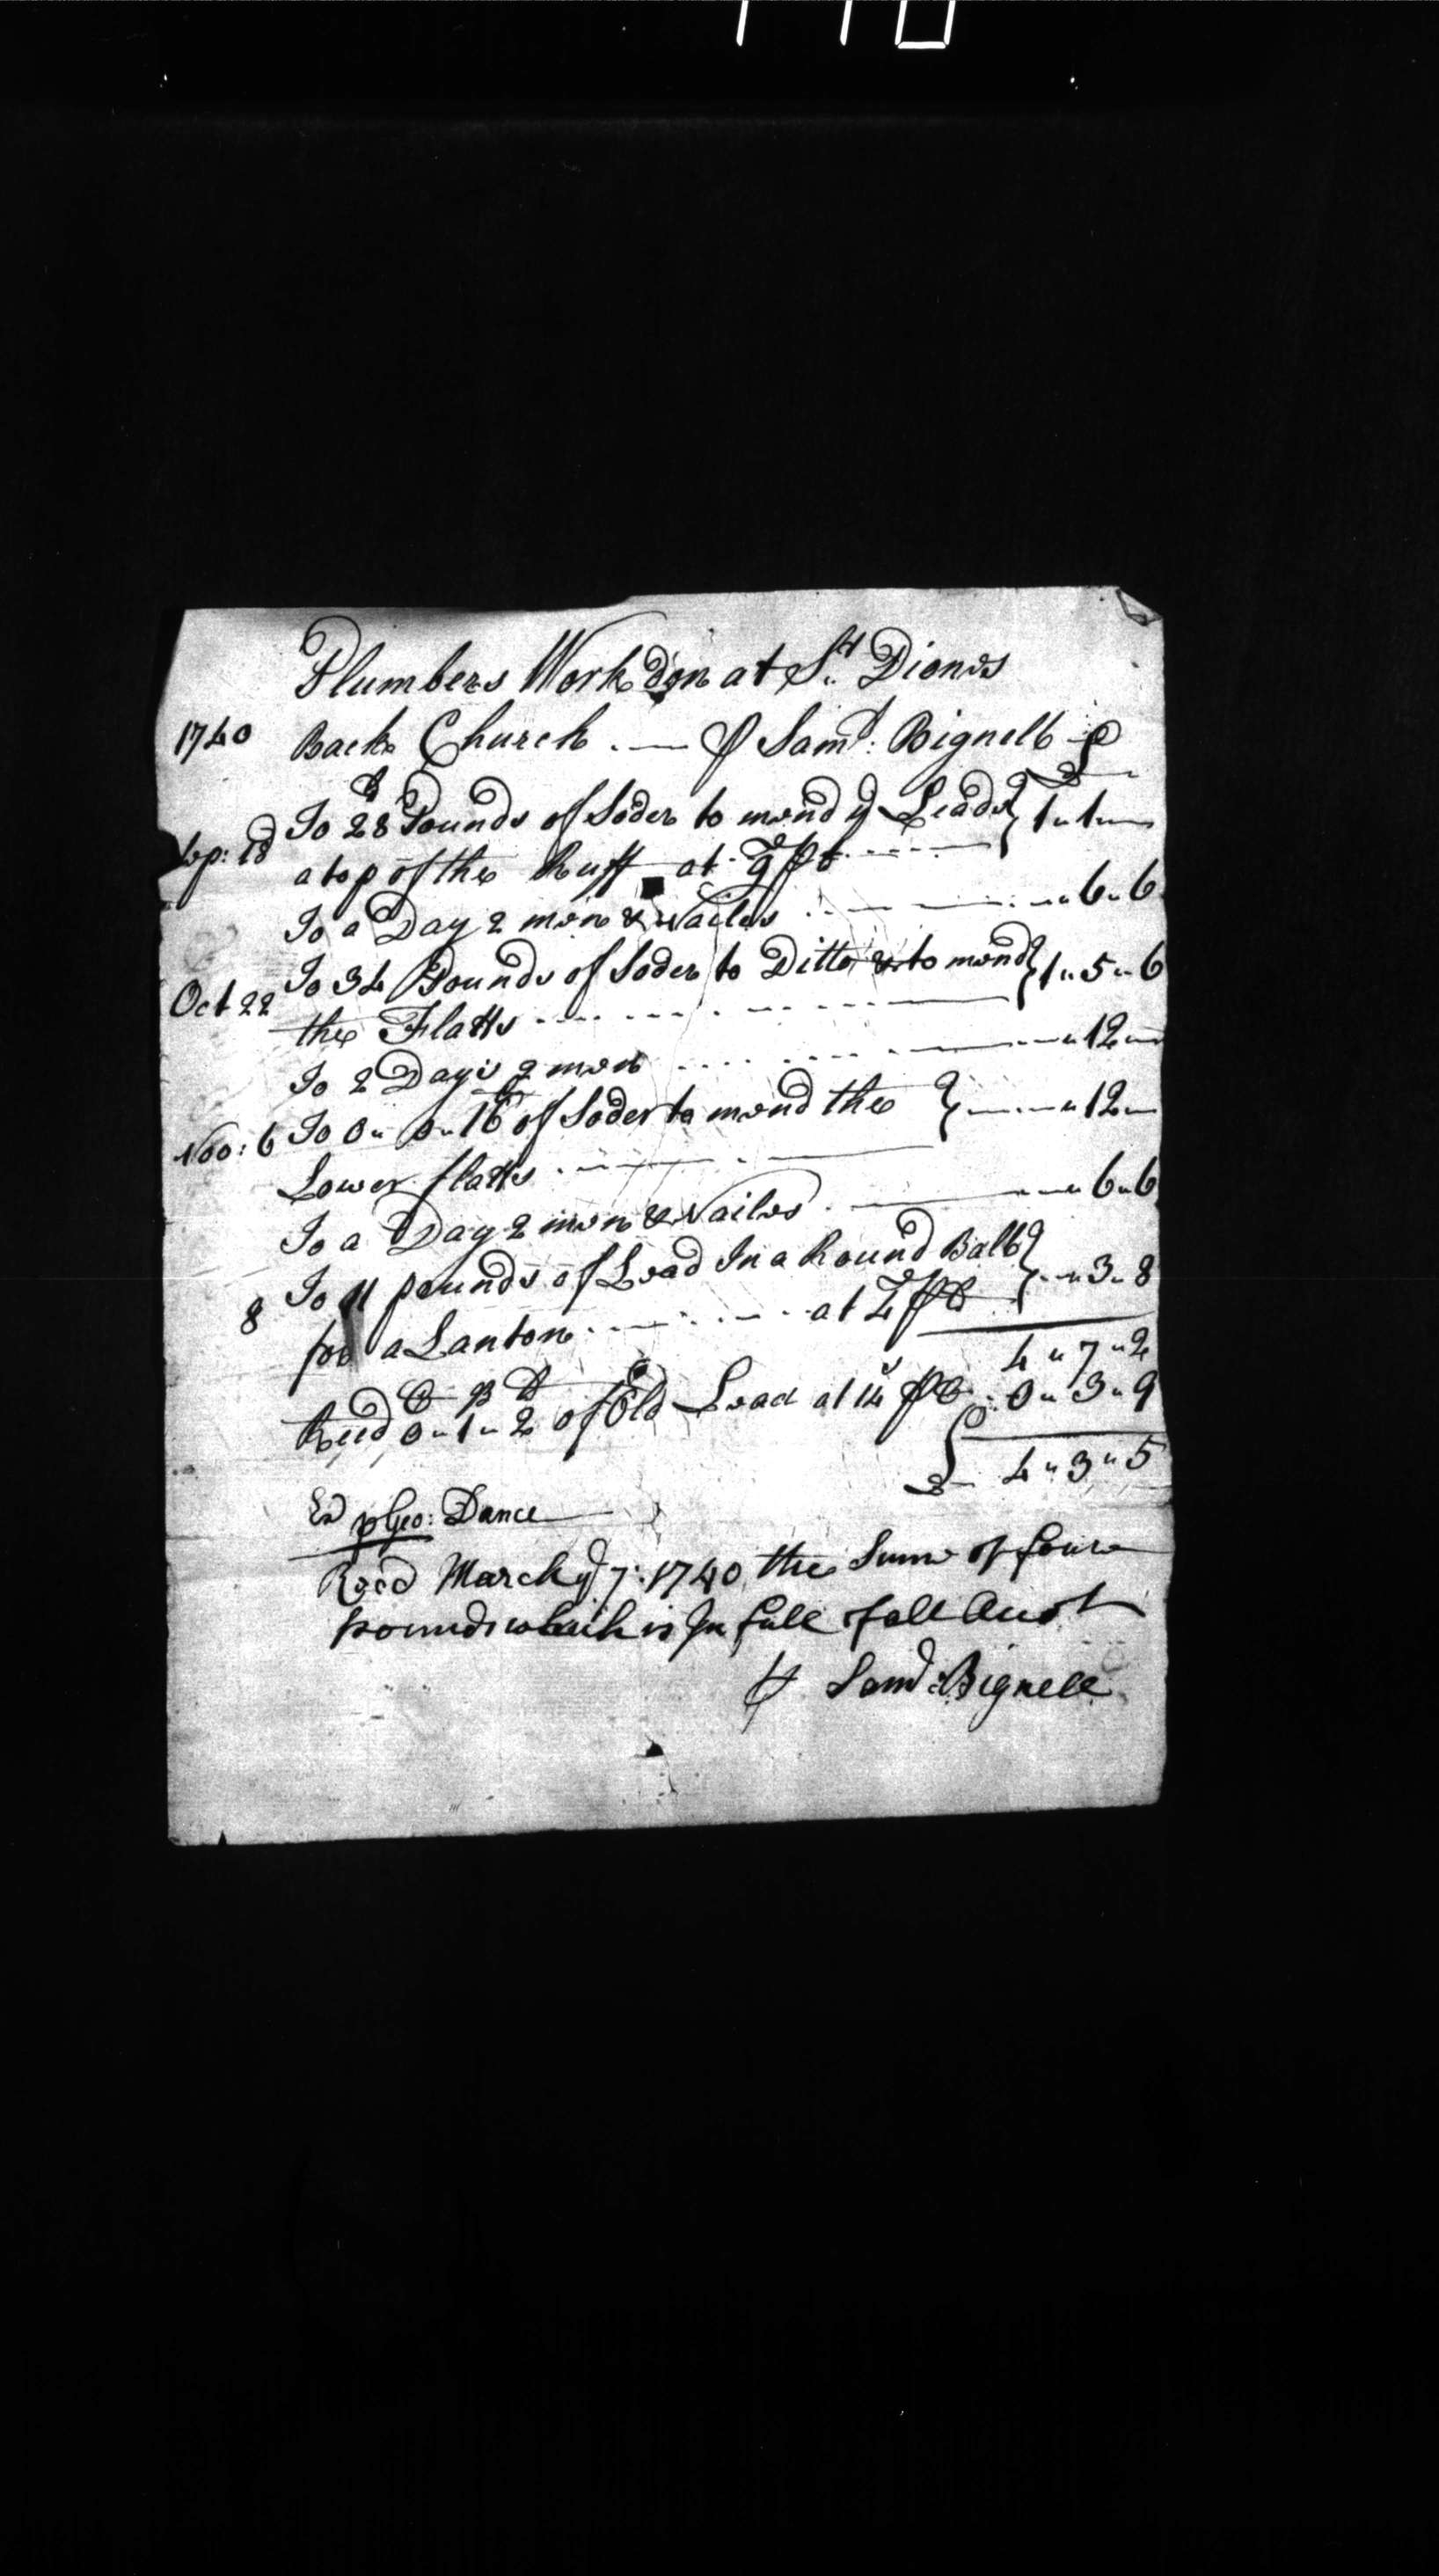 110
Plumbers Work don at St. Diones
1740 Back Church . — p Saml: Bignell £
Sep: 18 To 28 Pounds of Soder to mend ye Leads } 1 " 1 "
atop of the Ruff at 9d p lb
To a Day 2 men & Nailes " 6 " 6
Oct 22 To 34 Pounds of Soder to Ditto & to mend } 1 " 5 " 6
the Flatts
To 2 Days 2 men " 12 "
Nov: 6 To 0 " 0 " 16 of Soder to mend the } " 12 "
Lower flatts
To a Day 2 men & Nailes " 6 " 6
8 To 11 pounds of Lead In a Round Ball } " 3 " 8
for a Lanton at 4d p lb
4 " 7 " 2
Recd 0 " 1 " 2 of Old Lead at 14s p C : 0 " 3 " 9
£ 4 " 3 " 5
Exd p Geo: Dance
Recd March ye 7: 1740 the Sume of foure
pounds which is In full of all Acct
p Saml: Bignell